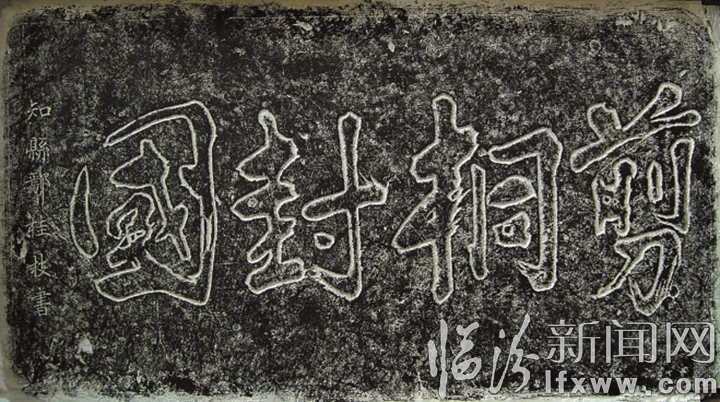 剪桐封國
知縣鄒桂牧書
临汾新闻网
www.lfxww.com